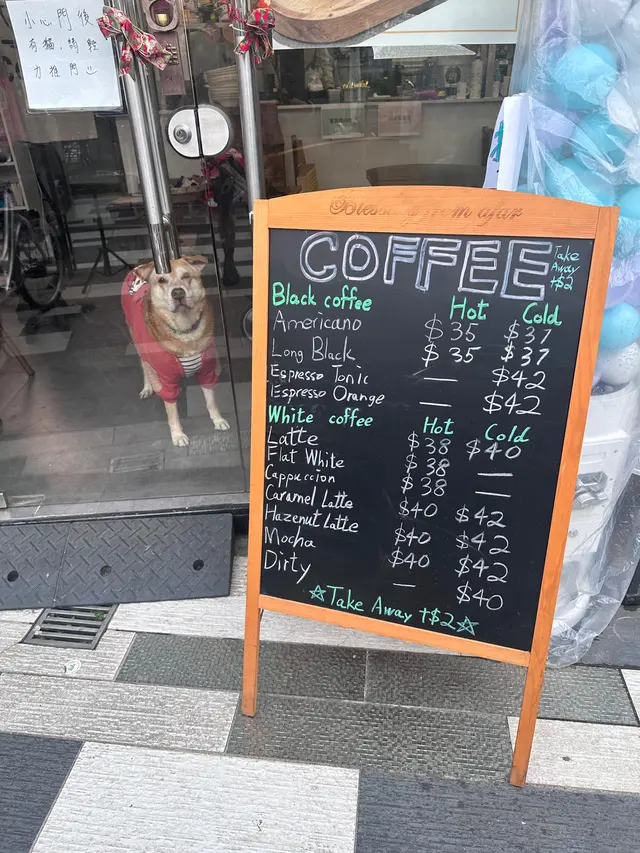 小心門後
有貓，請輕
力推門
from afar
COFFEE
Take
Away
+$2
Black coffee Hot Cold
Americano $35 $37
Long Black $35 $37
Espresso Tonic — $42
Espresso Orange — $42
White coffee Hot Cold
Latte $38 $40
Flat White $38 —
Cappuccion $38 —
Caramel Latte $40 $42
Hazenut Latte $40 $42
Mocha $40 $42
Dirty — $40
☆Take Away +$2☆